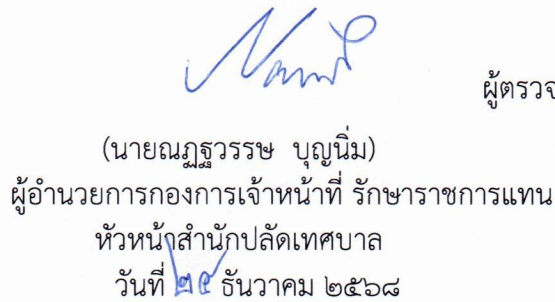 ผู้ตรวจ
(นายณฏฐวรรษ บุญนิ่ม)
ผู้อำนวยการกองการเจ้าหน้าที่ รักษาราชการแทน
หัวหน้าสำนักปลัดเทศบาล
วันที่ ธันวาคม ๒๕๖๘